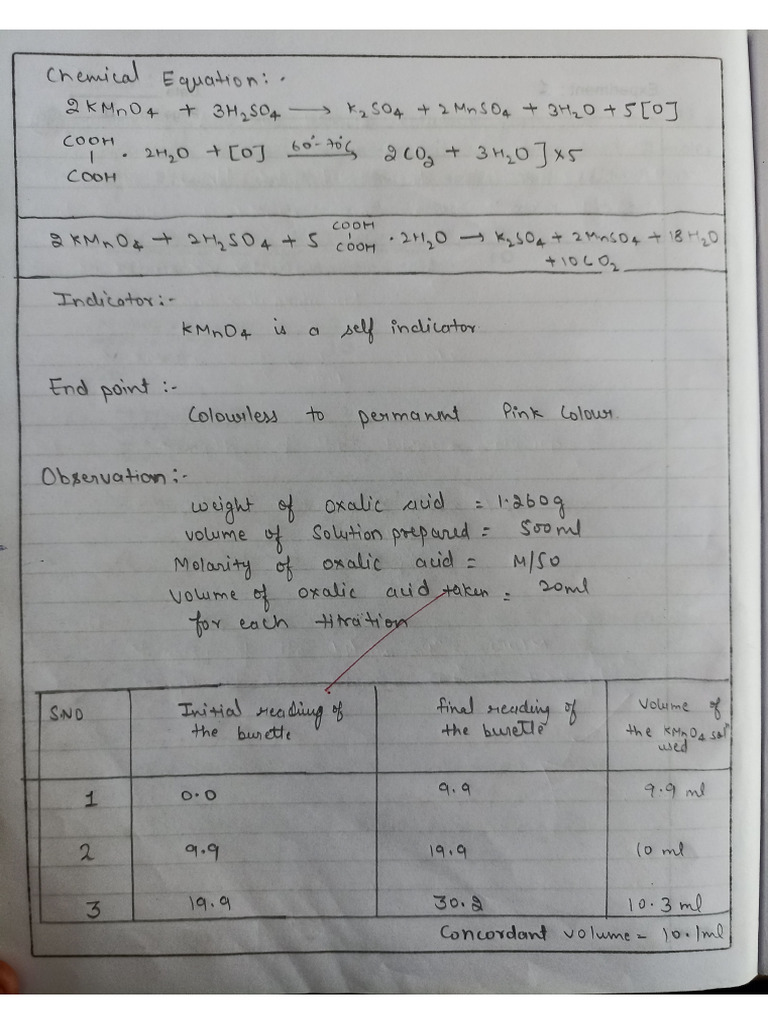 Chemical Equation:-
2KMnO4 + 3H2SO4 → K2SO4 + 2MnSO4 + 3H2O + 5[O]
COOH
| · 2H2O + [O] 60°-70°C → 2CO2 + 3H2O ] x5
COOH
2KMnO4 + 2H2SO4 + 5 COOH | COOH · 2H2O → K2SO4 + 2MnSO4 + 18H2O
+10CO2
Indicator:-
KMnO4 is a self indicator
End point :-
Colourless to permanmt Pink Colour.
Observation:-
weight of oxalic acid = 1.260g
volume of Solution prepared = 500ml
Molarity of oxalic acid = M/50
Volume of oxalic acid taken = 20ml
for each titration
SNO Initial reading of the burette final reading of the burette Volume of the KMnO4 solⁿ used
1 0.0 9.9 9.9 ml
2 9.9 19.9 10 ml
3 19.9 30.2 10.3 ml
Concordant volume = 10.1ml